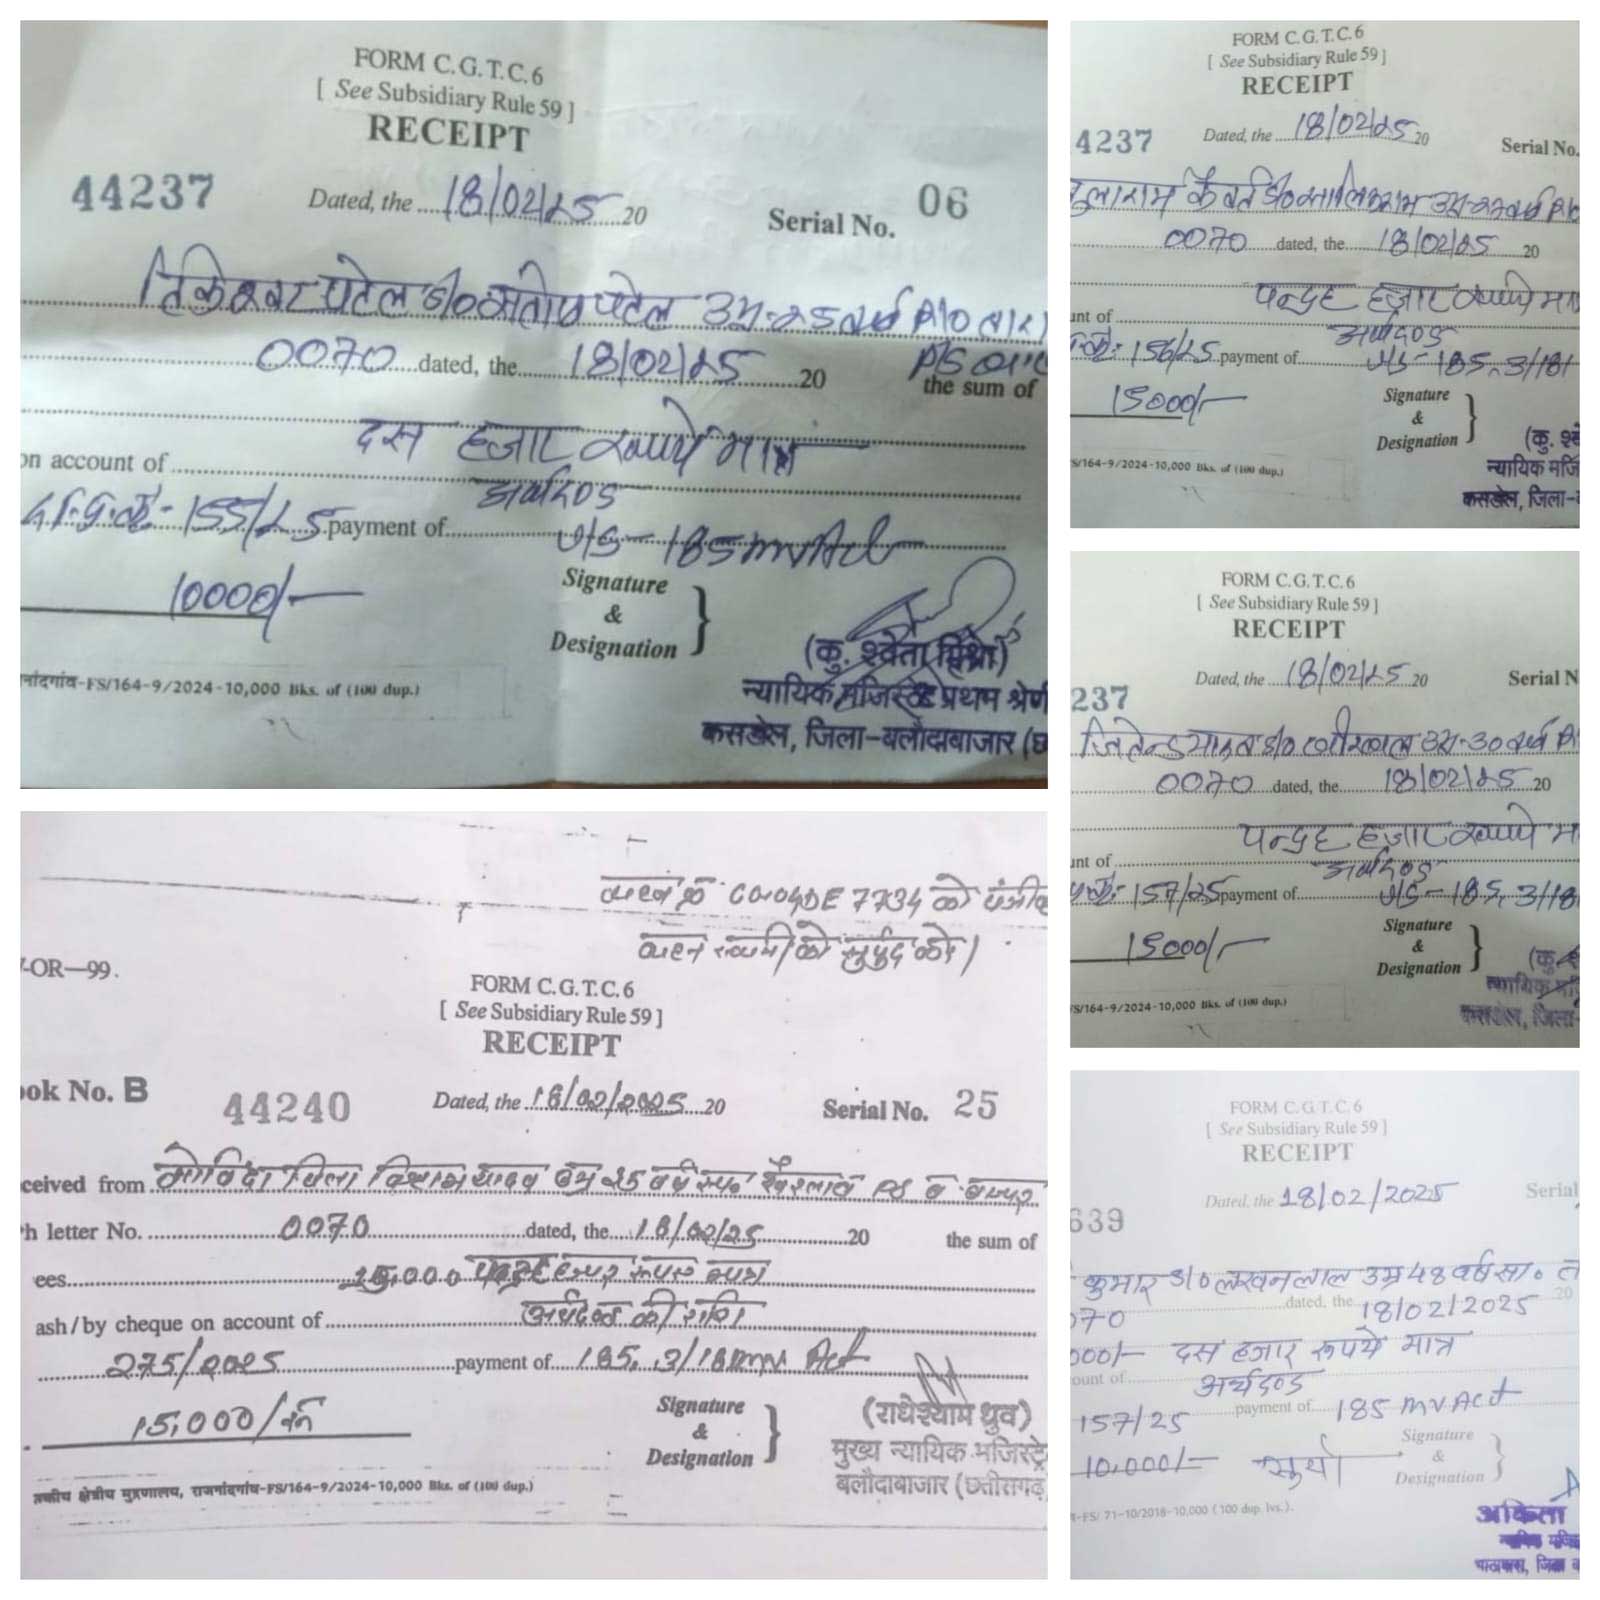 FORM C.G.T.C.6
[ See Subsidiary Rule 59 ]
RECEIPT
44237 Dated, the 18/02/25 20 Serial No. 06
पटेल S/o पटेल उम्र-25 वर्ष R/o
0070 dated, the 18/02/25 20 P/S
the sum of
दस हजार रूपये मात्र
on account of अर्थदण्ड
155/25 payment of U/S-185 mv Act
10000/-
Signature
&
Designation
(कु. श्वेता मिश्रा)
न्यायिक मजिस्ट्रेट प्रथम श्रेणी
कसडोल, जिला-बलौदाबाजार (छ
नांदगांव-FS/164-9/2024-10,000 Bks. of (100 dup.)
FORM C.G.T.C.6
[ See Subsidiary Rule 59 ]
RECEIPT
4237 Dated, the 18/02/25 20 Serial No.
कैवर्त S/o उम्र-27 वर्ष R/o
0070 dated, the 18/02/25 20
पन्द्रह हजार रूपये मात्र
unt of अर्थदण्ड
156/25 payment of U/S-185, 3/181
15000/-
Signature
&
Designation
(कु. श्वे
न्यायिक मजि
कसडोल, जिला-ब
S/164-9/2024-10,000 Bks. of (100 dup.)
FORM C.G.T.C.6
[ See Subsidiary Rule 59 ]
RECEIPT
237 Dated, the 18/02/25 20 Serial N
जितेन्द्र यादव S/o उम्र-30 वर्ष R/
0070 dated, the 18/02/25 20
पन्द्रह हजार रूपये म
unt of अर्थदण्ड
157/25 payment of U/S-185, 3/18
15000/-
Signature
&
Designation
(कु.
न्यायिक
कसडोल, जिला
S/164-9/2024-10,000 Bks. of (100 dup.)
वाहन क्र CG04DE 7734 को
वाहन स्वामी को सुपुर्द करे।
-OR—99.
FORM C.G.T.C.6
[ See Subsidiary Rule 59 ]
RECEIPT
ook No. B 44240 Dated, the 18/02/2025 20 Serial No. 25
ceived from गोविंदा पिता यादव उम्र 25 वर्ष
h letter No. 0070 dated, the 18/02/25 20 the sum of
ees 15,000 पन्द्रह हजार रूपए मात्र
ash/by cheque on account of अर्थदण्ड की राशि
275/2025 payment of 185, 3/181 mv Act
15,000/
Signature
&
Designation
(राधेश्याम ध्रुव)
मुख्य न्यायिक मजिस्ट्रे
बलौदाबाजार (छत्तीसगढ़
क्षेत्रीय मुद्रणालय, राजनांदगांव-FS/164-9/2024-10,000 Bks. of (100 dup.)
FORM C.G.T.C.6
[ See Subsidiary Rule 59 ]
RECEIPT
639 Dated, the 18/02/2025 Serial
कुमार S/o लखनलाल उम्र 48 वर्ष सा.
070 dated, the 18/02/2025 20
000/- दस हजार रूपये मात्र
ount of अर्थदण्ड
157/25 payment of 185 mv Act
10,000/-
Signature
&
Designation
अंकिता
-FS/ 71-10/2018-10,000 (100 dup. lvs.).